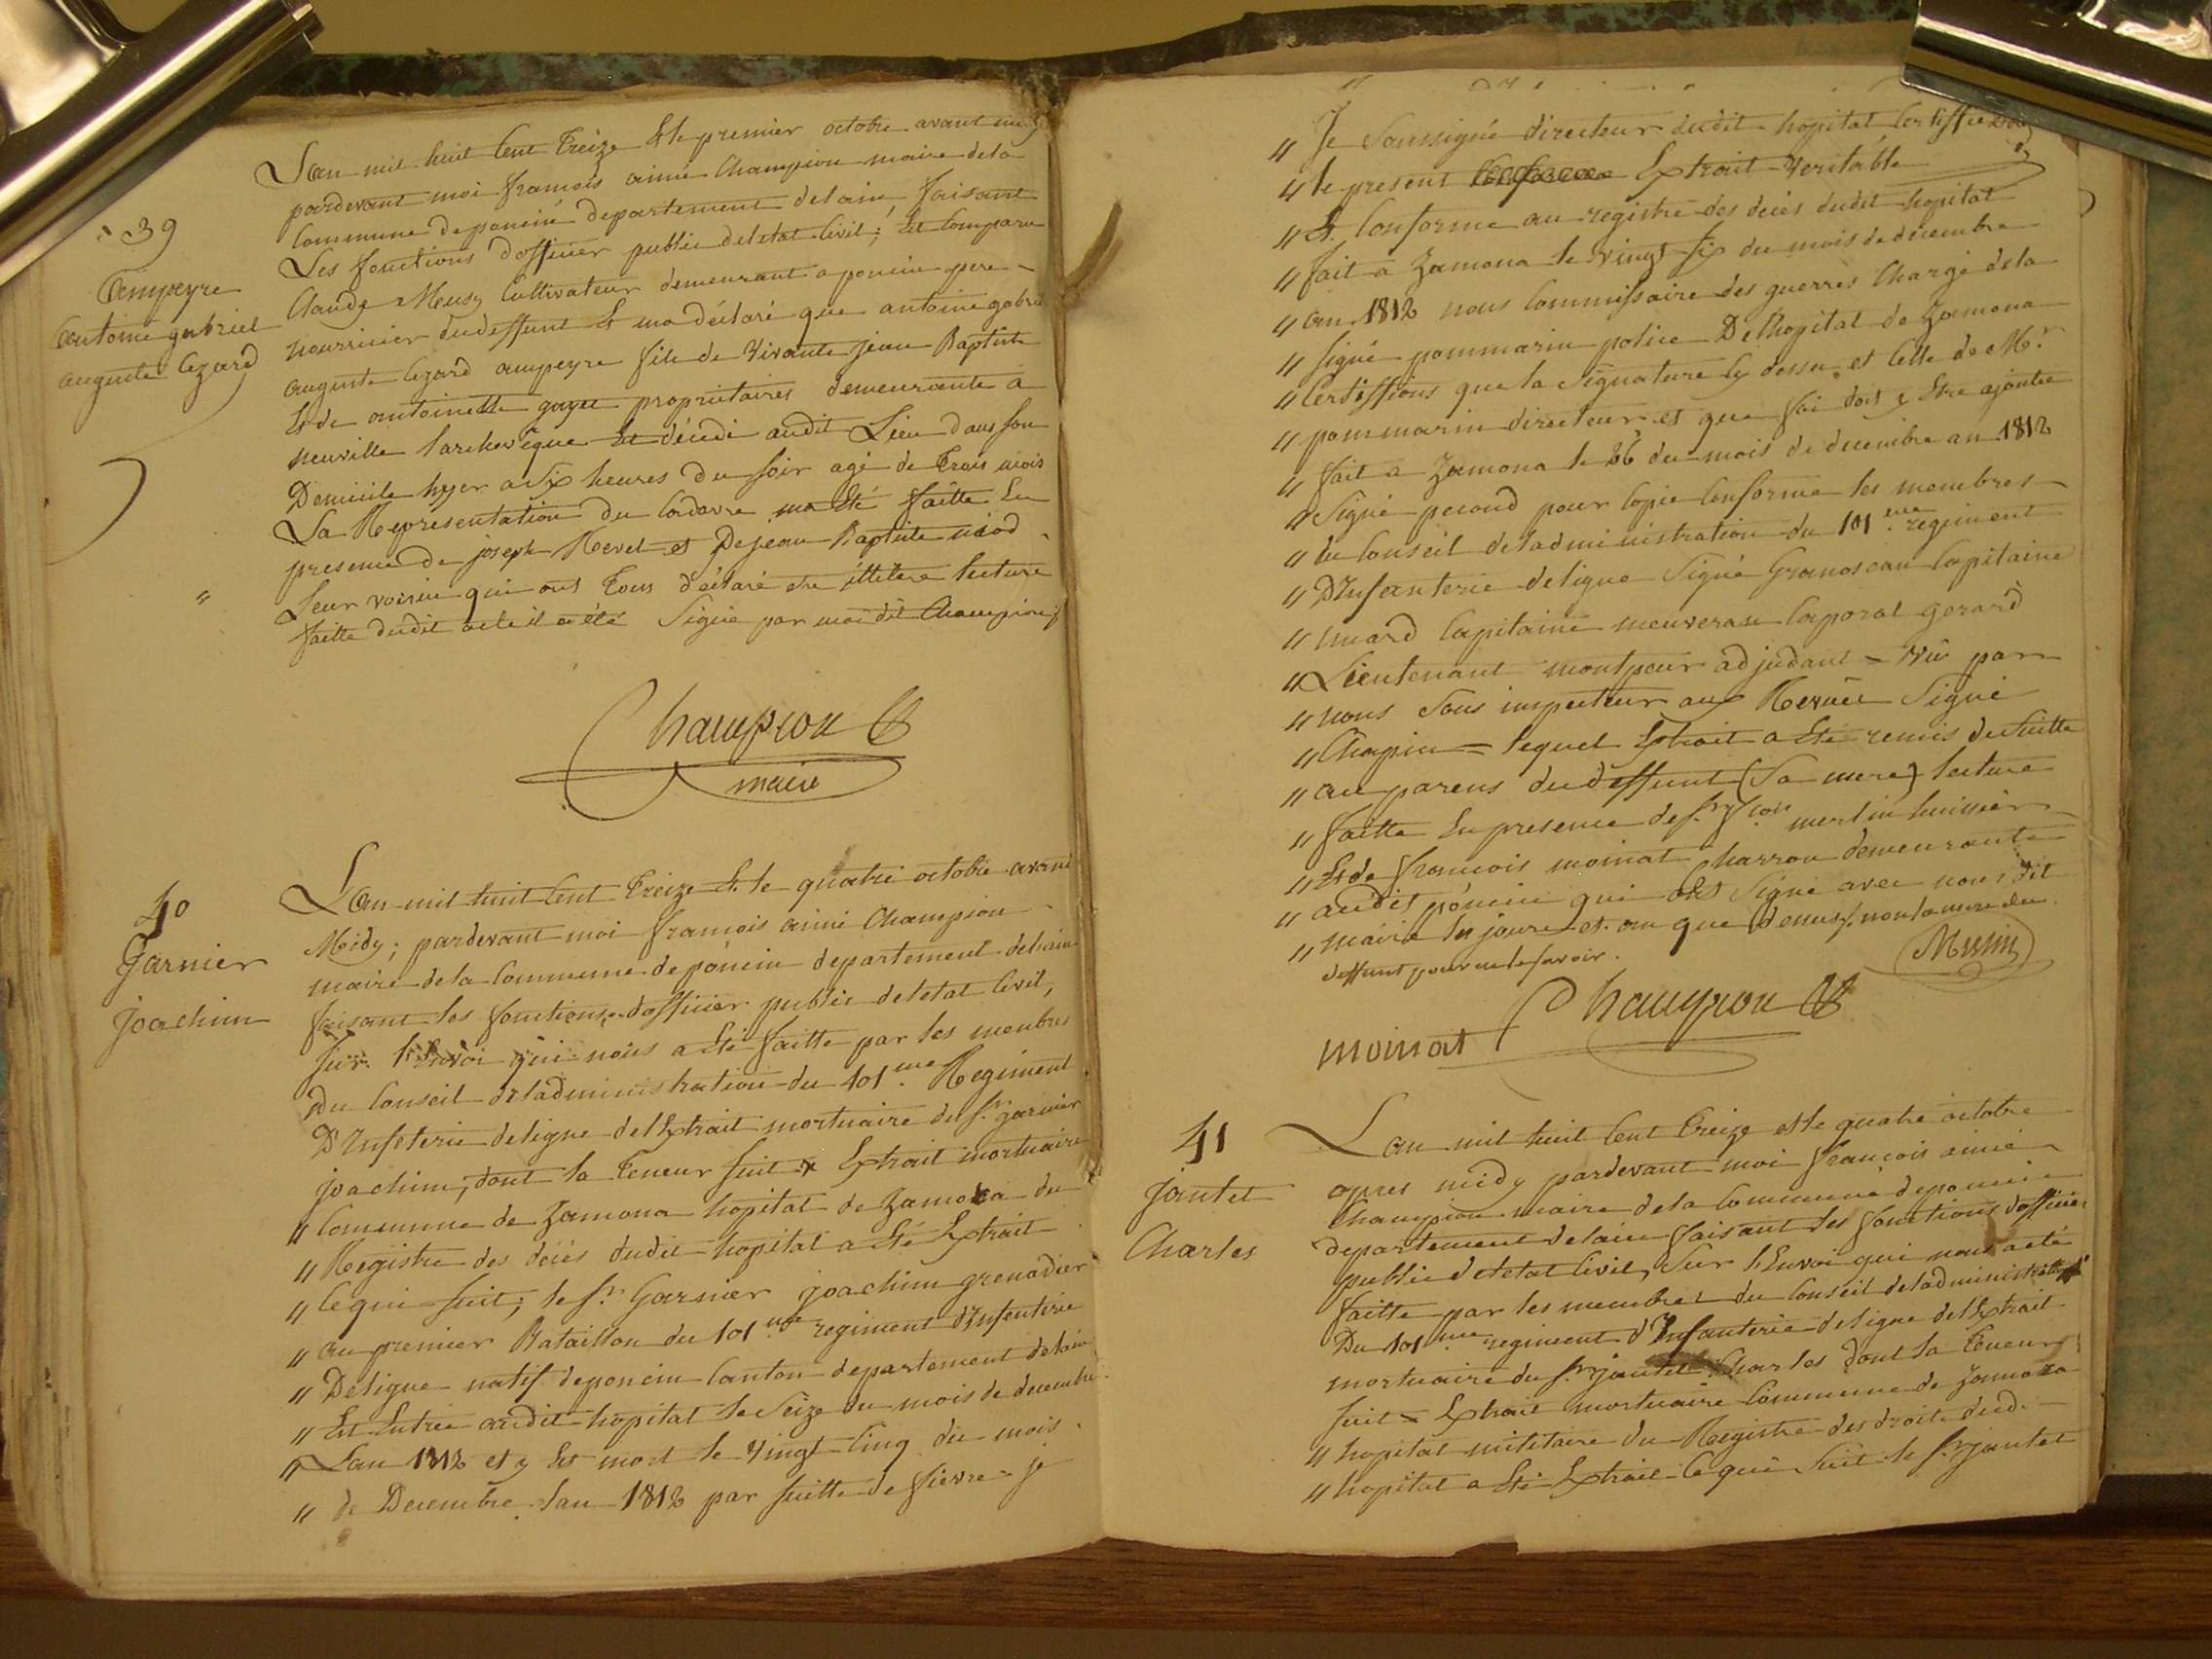 39
Ampeyre
antoine gabriel
auguste lezard
Lan mil huit Cent Treize Et le premier octobre avant midy
pardevant moi francois aimé Champion maire dela
Commune de poncin departement delain faisant
Les fonctions dofficier public deletat Civil; Est Comparu
Claude Meusy Cultivateur demeurant a poncin pere
nourricier dudeffunt Et ma déclaré que antoine gabriel
auguste lezard ampeyre fils de vivants jean Baptiste
Et de antoinette goyet propriétaires demeurants a
neuville larchevêque Est décédé audit Lieu dans son
Domicile hyer a six heures du soir agé de Trois mois
La Representation du Cadavre ma Eté faitte En
presence de joseph Revel et De jean Baptiste
Leur voisin qui ont Tous déclaré etre illitere lecture
faitte dudit acte il a été Signé par moi dit Champion
Champion
maire
40
Garnier
joachim
Lan mil huit Cent Treize Et le quatre octobre avant
Midy; pardevant moi francois aimé Champion
maire dela Commune de poncin departement delain
faisant les fonctions dofficier public deletat Civil,
sur l'Envoi qui nous a Eté faitte par les membres
Du Conseil deladministration du 101.me Regiment
D'Infeterie deligne del Extrait mortuaire du s.r garnier
joachim, dont la Teneur suit Extrait mortuaire
" Commune de Zamona hopital de Zamora du
" Registre des décés dudit hopital a Eté Extrait
" Ce qui suit; le s.r Garnier joachim grenadier
" au premier Bataillon du 101.me regiment d'Infenterie
" Deligne natif deponcin Canton departement delain
" Est Entrée audit hopital le Seize du mois de decembre
" Lan 1812 et y Est mort le vingt Cinq du mois
" de Decembre lan 1812 par suitte de fievre - je
" Je Soussigné directeur dudit hopital Certiffie
" le present Extrait veritable
" Et Conforme au registre des décés dudit hopital
" fait a Zamona le vingt six du mois de decembre
" an 1812 nous Commissaire des guerres Chargé dela
" signé pommarin police De lhopital de Zamona
" Certiffions que la Signature Cy dessus et Celle de M.r
" pommarin directeur et que foi doit y Etre ajoutée
" fait a Zamona le 26 du mois de decembre an 1812
" Signé pour Copie Conforme les membres
" du Conseil deladministration du 101.me regiment
" DInfanterie deligne Signé Capitaine
" Capitaine Caporal gerard
" Lieutenant adjudant = vu par
" nous Sous inspecteur aux Revues Signé
" Chapin = lequel Extrait a Eté remis desuitte
" au parens dudeffunt (Sa mere) lecture
" faitte En presence de s.r merlin huissier
" Et de francois moinat Charron demeurants
" audit poncin qui ont Signé avec nous dit
" maire les jours et an que dessus, non la mere du
deffunt pour ne le savoir.
Merlin
moinat Champion
41
jantet
Charles
Lan mil huit Cent Treize et le quatre octobre
apres midy pardevant moi francois aimé
Champion maire dela Commune deponcin
departement delain faisant les fonctions dofficier
public deletat Civil, Sur l'Envoi qui nous a eté
faitte par les membres du Conseil deladministration
Du 101.me regiment d'Infanterie deligne del Extrait
mortuaire du s.r jantet Charles dont la Teneur
suit = Extrait mortuaire Commune de Zamora
" hopital militaire du Registre des droits dud.
" hopital a Eté Extrait Ce qui Suit le s.r jantet